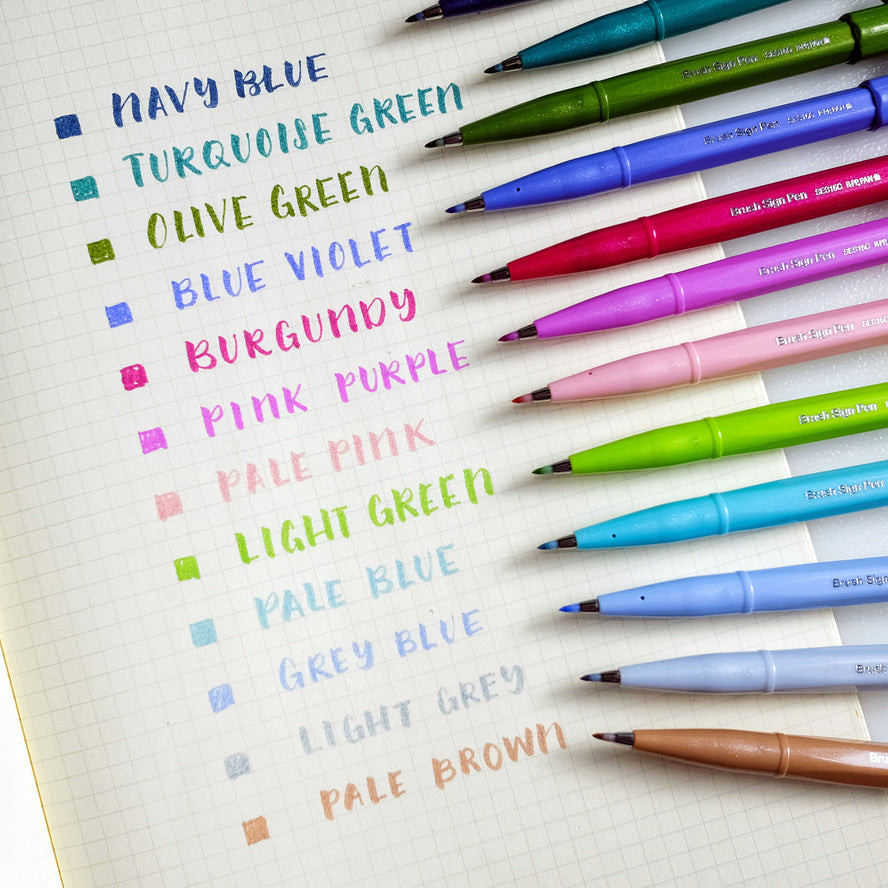 NAVY BLUE
TURQUOISE GREEN
OLIVE GREEN
BLUE VIOLET
BURGUNDY
PINK PURPLE
PALE PINK
LIGHT GREEN
PALE BLUE
GREY BLUE
LIGHT GREY
PALE BROWN
Brush Sign Pen
Brush Sign Pen
Brush Sign Pen SES15C
Brush Sign Pen SES15C
Brush Sign Pen SES15C
Brush Sign Pen
Brush Sign Pen
Brush Sign
Brush
Bru